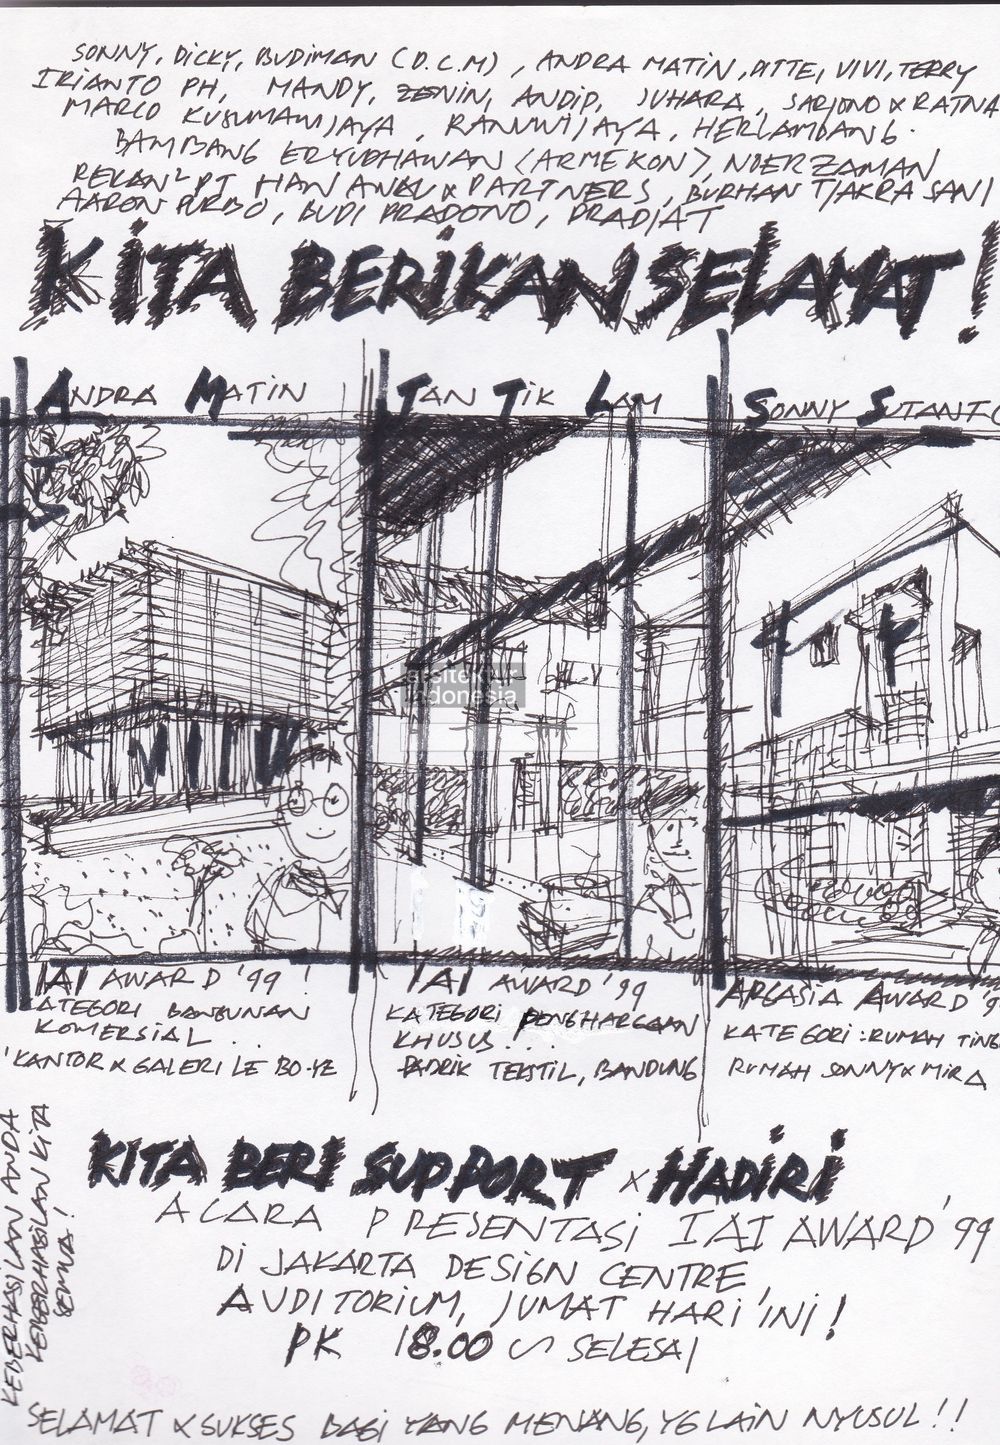 SONNY, DICKY, BUDIMAN (D.C.M), ANDRA MATIN, DITTE, VIVI, TERRY
IRIANTO PH, MANDY, ZENIN, ANDID, JUHARA, SARJONO & RATNA
MARCO KUSUMAWIJAYA, RANUWIJAYA, HERLAMBANG.
BAMBANG ERYUDHAWAN (ARMEKON), NOERZAMAN
REKAN² PT HAN AWAL & PARTNERS, BURHAN TJAKRA SANI
AARON PURBO, BUDI PRADONO, PRADJAT
KITA BERIKAN SELAMAT!
ANDRA MATIN
TAN TIK LAM
SONNY SUTANTO
arsitektur
indonesia
IAI AWARD '99!
KATEGORI BANGUNAN
KOMERSIAL..
'KANTOR & GALERI LE BO-YE
IAI AWARD '99
KATEGORI PENGHARGAAN
KHUSUS!..
PABRIK TEKSTIL, BANDUNG
ARCASIA AWARD '9
KATEGORI: RUMAH TING
RUMAH SONNY & MIRA
KEBERHASILAN ANDA
KEBERHASILAN KITA
SEMUA!
KITA BERI SUPPORT & HADIRI
ACARA PRESENTASI IAI AWARD '99
DI JAKARTA DESIGN CENTRE,
AUDITORIUM, JUMAT HARI INI!
PK 18.00 ~ SELESAI
SELAMAT & SUKSES BAGI YANG MENANG, YG LAIN NYUSUL!!